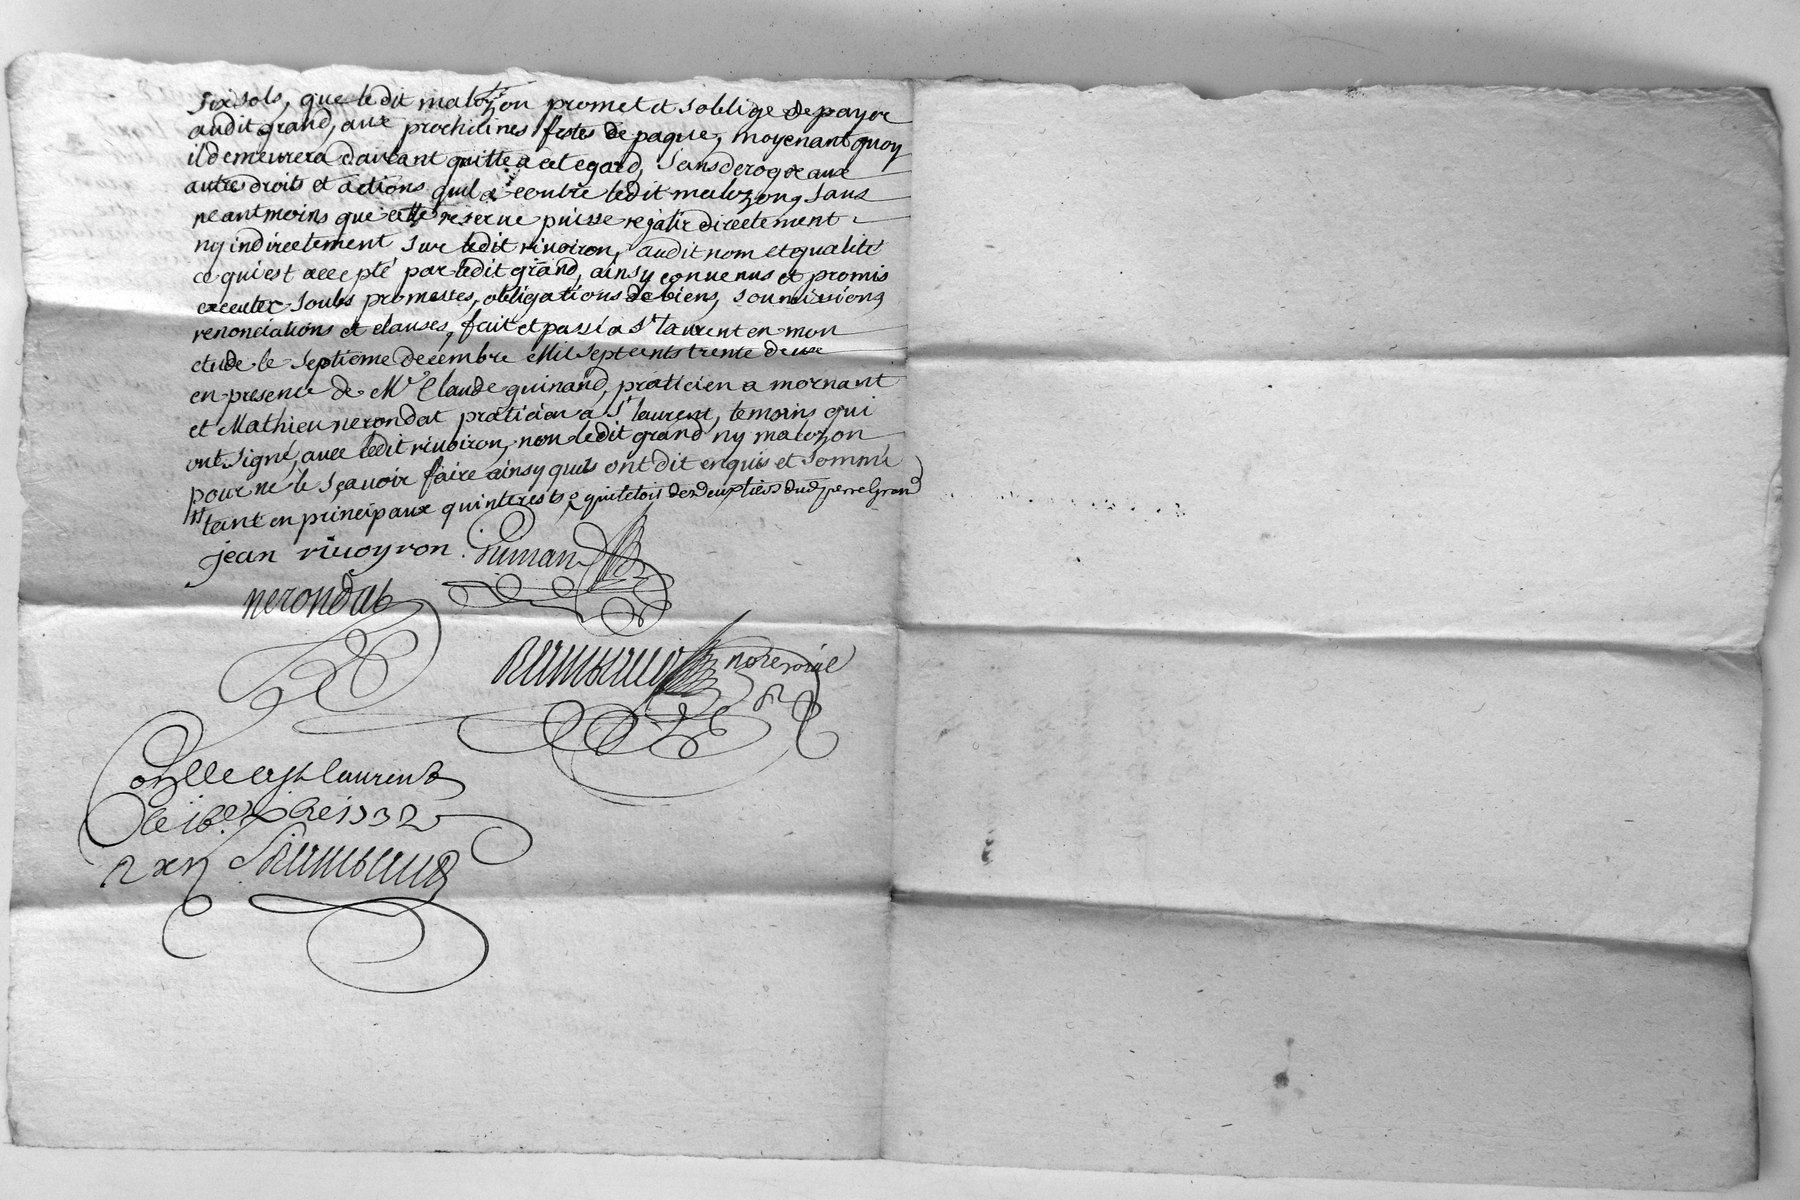 six sols, que ledit malozon promet et soblige de payer
audit grand, aux prochaines festes de paque, moyenant quoy
il demeurera dautant quitte a cet egard, sans deroger aux
autres droits et actions quil a contre ledit malozon, sans
neantmoins que cette reserve puisse rejalir directement
ny indirectement sur ledit rivoiron, audit nom et qualités
ce qui est accepté par ledit grand, ainsy convenus et promis
executer soubs promesses, obligations de biens, soumissions,
renonciations et clauses, fait et passé a st laurent en mon
etude le septieme decembre mil sept cents trente deux
en presence de Mr Claude guinand, praticien a mornant
et Mathieu nerondat praticien a st laurent, temoins qui
ont signé, avec ledit rivoiron, non ledit grand ny malozon
pour ne le sçavoir faire ainsy quils ont dit enquis et sommé
tant en principaux quinterests
jean rivoyron
nerondat
st laurent
1732